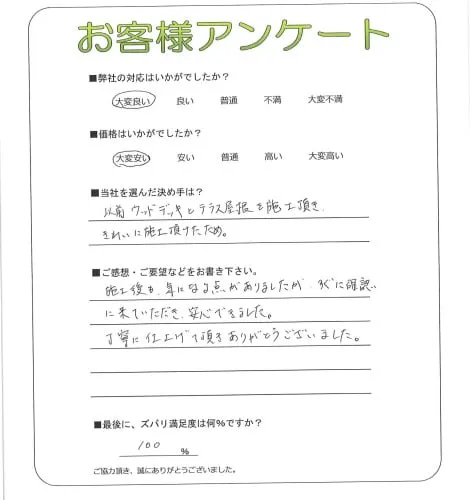 お客様アンケート
■弊社の対応はいかがでしたか?
大変良い 良い 普通 不満 大変不満
■価格はいかがでしたか?
大変安い 安い 普通 高い 大変高い
■当社を選んだ決め手は?
以前ウッドデッキとテラス屋根を施工頂き、
きれいに施工頂けたため。
■ご感想・ご要望などをお書き下さい。
施工後も、気になる点がありましたが、すぐに確認
に来ていただき、安心できました。
丁寧に仕上げて頂きありがとうございました。
■最後に、ズバリ満足度は何%ですか?
100 %
ご協力頂き、誠にありがとうございました。